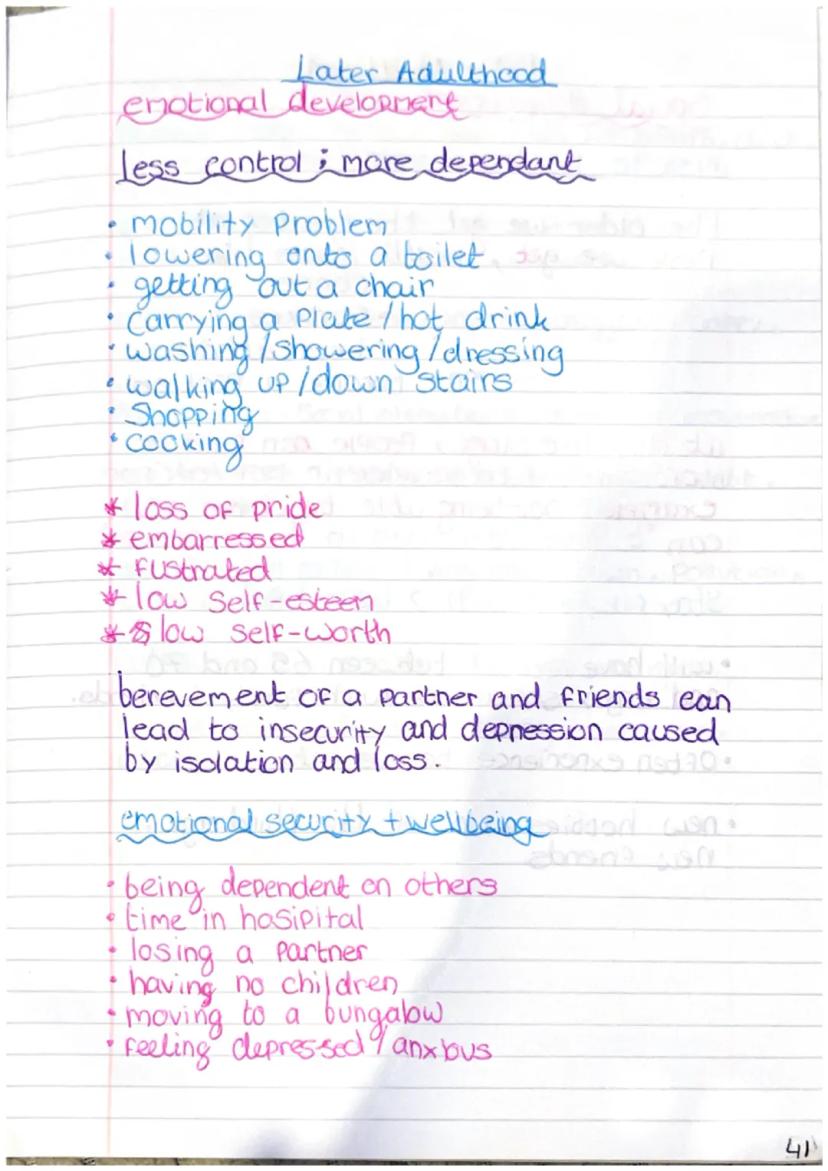 Later Adulthood
emotional development
less control ; more dependant
• mobility problem
• lowering onto a toilet
• getting out a chair
• carrying a plate / hot drink
• washing / showering / dressing
• walking up / down stairs
• Shopping
• cooking
* loss of pride
* embarressed
* fustrated
* low self-esteen
* low self-worth
berevement of a partner and friends can
lead to insecurity and depression caused
by isolation and loss.
emotional security + wellbeing
• being dependent on others
• time in hosipital
• losing a partner
• having no children
• moving to a bungalow
• feeling depressed / anxious
41